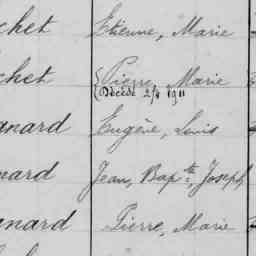 chet Etienne, Marie
chet Pierre, Marie
Décédé 2/8 1911
nard Eugène, Louis
nard Jean, Bapte, Joseph
nard Pierre, Marie